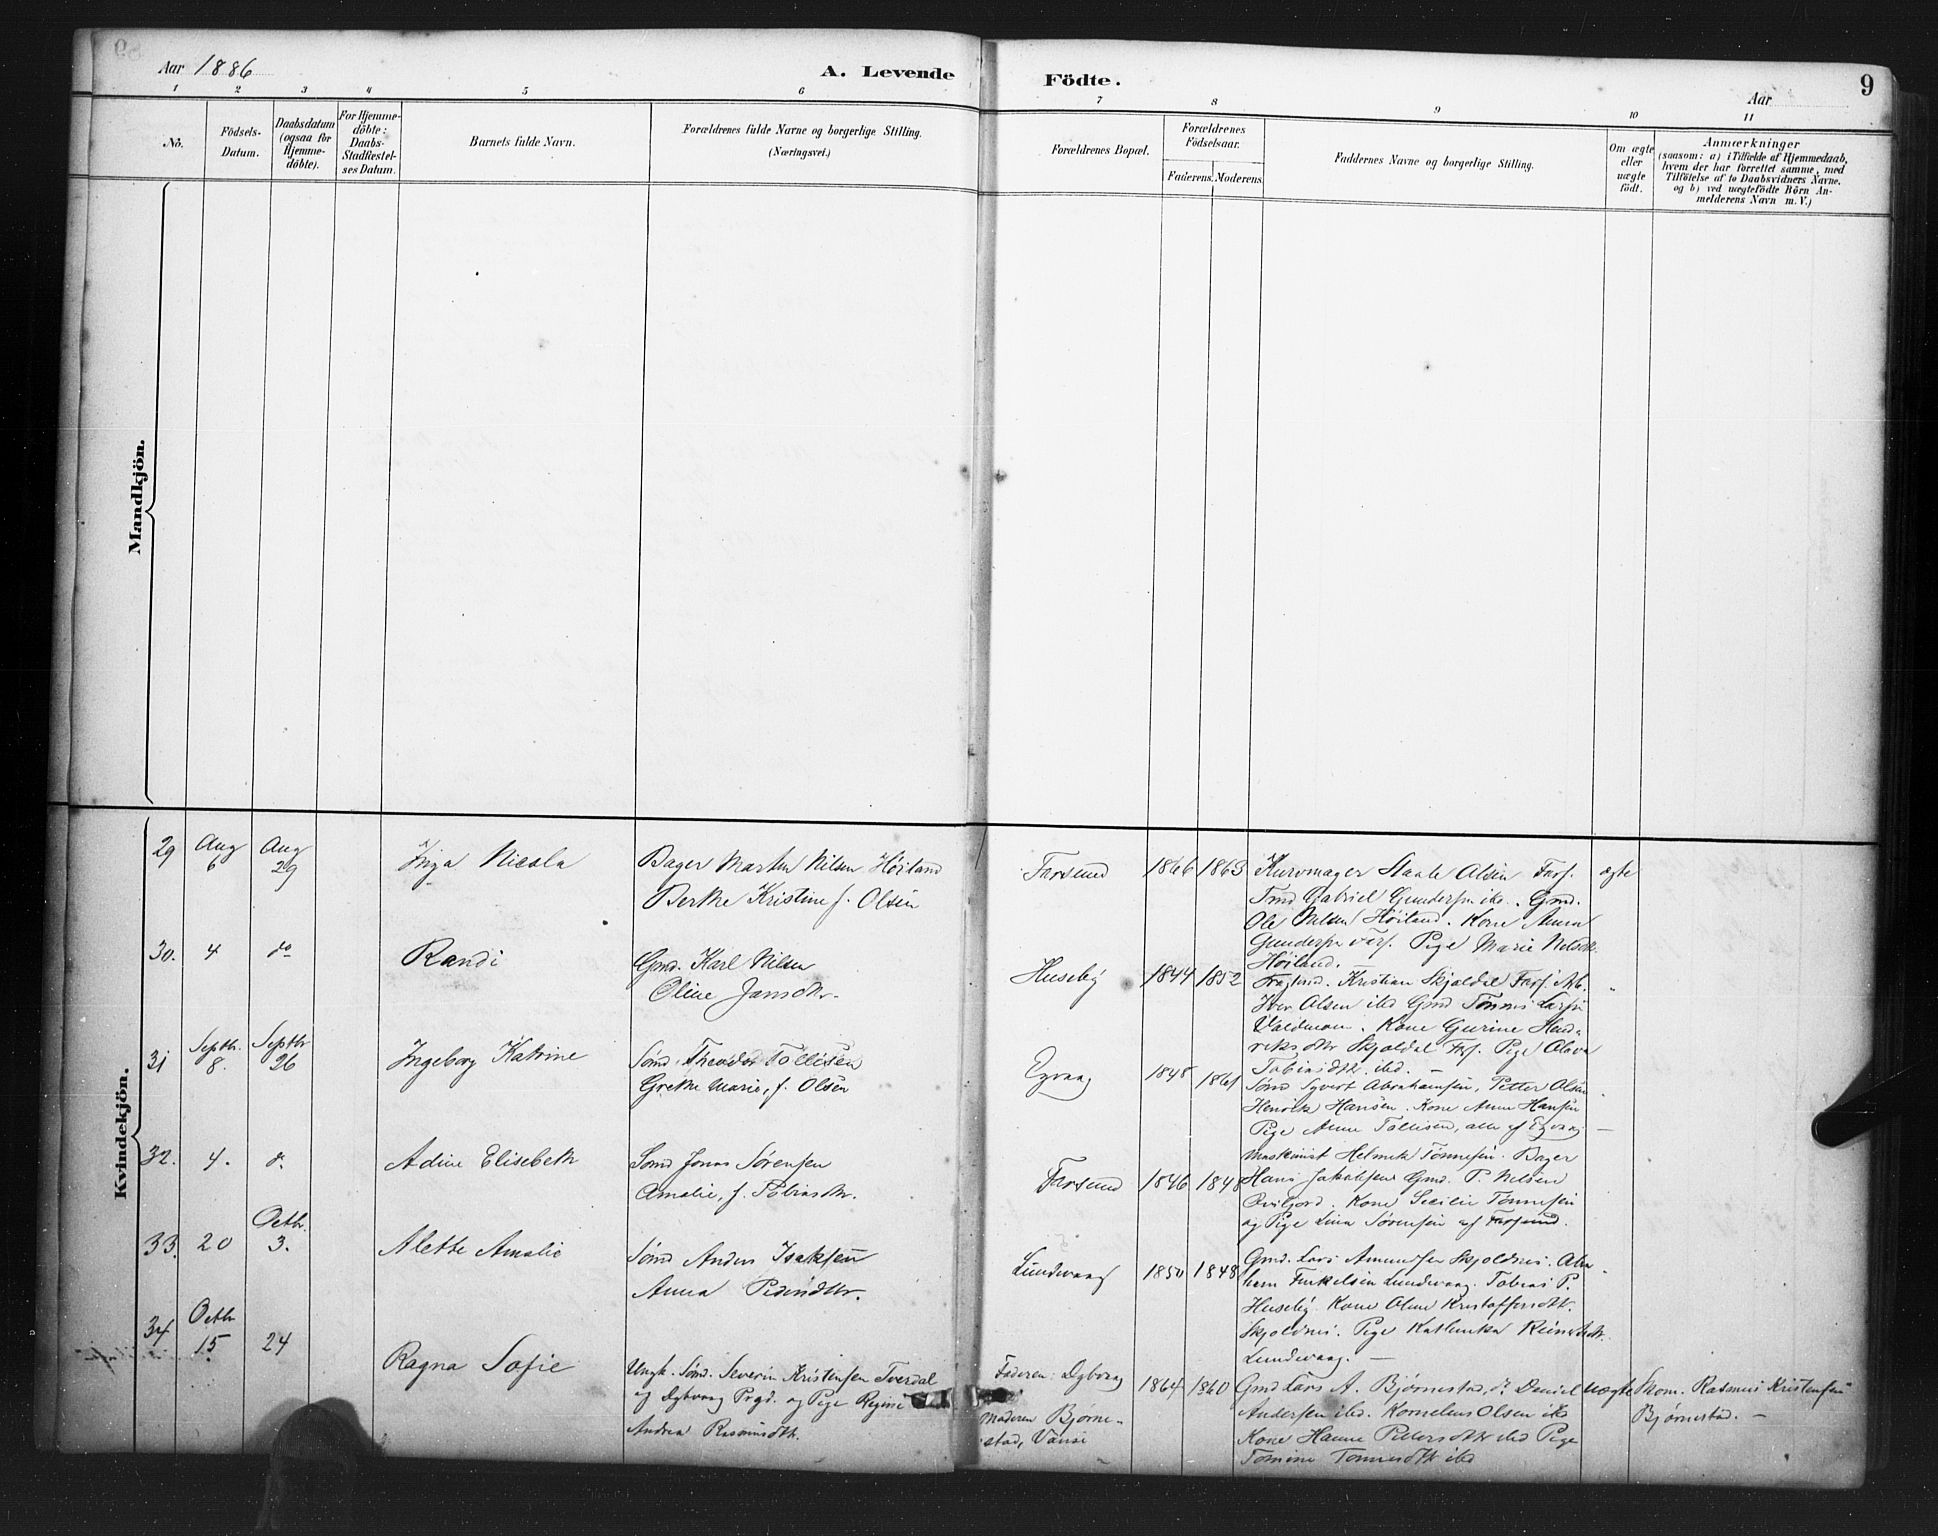 Aar 1886 A. Levende Födte. Aar 9
1 2 3 4 5 6 7 8 9 10 11
No.
Födsels-
Datum.
Daabsdatum
(ogsaa for
Hjemme-
döbte).
For Hjemme-
döbte:
Daabs-
Stadfæstel-
ses Datum.
Barnets fulde Navn.
Forældrenes fulde Navne og borgerlige Stilling.
(Næringsvei.)
Forældrenes Bopæl.
Forældrenes
Födselsaar.
Faderens. Moderens.
Faddernes Navne og borgerlige Stilling.
Om ægte
eller
uægte
födt.
Anmærkninger
(saasom: a) i Tilfælde af Hjemmedaab,
hvem der har forrettet samme, med
Tilföielse af to Daabsvidners Navne.
og b) ved uægtefödte Börn An-
melderens Navn m. V.)
Mandkjön.
Kvindekjön.
29 Aug 6 Aug 29 Inga Nicola
Bager Marten Nilsen Höiland
Berthe Kristine f. Olsen
Farsund 1866 1863
Kurvmager Staale Olsen Fars.
Tmd Gabriel Gundersen ibd. Gmd.
Ole Nilsen Höiland. Kone Anna
Gundersen Fars. Pige Marie Nilsdtr.
Höiland.
ægte
30. 4 do Randi
Gmd. Karl Nilsen
Oline Jansdtr.
Huseby 1844 1852
Kristian Skjoldal Fars. Arb.
Iver Olsen ibd Gmd Tönnes Larsen
Kone Gurine Hend-
riksdtr Skjoldal Fars. Pige Olava
Tobiasdtr. ibd. —
"
31 Septbr. 8. Septbr 26 Ingeborg Katrine
Sömd. Theodor Tollisen
Grethe Marie, f. Olsen
Egvaag 1848 1861
Sömd Syvert Abrahamsen, Petter Olsen
Henrik Hansen. Kone Anne Hansen
Pige Anne Tollisen, alle af Egvaag —
32. 4. d. Adine Elisebeth
Sömd Jonas Sörensen
Amalie, f. Tobiasdtr.
Farsund 1846 1848
Maskinist Helmik Tönnesen. Bager
Hans Jakobsen Gmd. P. Nelsen
Kone Secilie Tönnesen
og Pige Lina Sörensen af Farsund.
33. 20 Octbr. 3. Alette Amalie
Sömd Anders Isaksen
Anna Pedersdtr.
Lundevaag 1850 1848
Gmd. Lars Amundsen Skjoldnes. Abra-
ham Lundevaag. Tobias P.
Huseby. Kone Oline Kristoffersdtr.
Skjoldnes. Pige Kathinka
Lundevaag. —
34 Octbr 15 24 Ragna Sofie
Ungk. Sömd. Severin Kristensen Tverdal
og Dybvaag Prgd. og Pige Regine
Andrea Rasmusdtr.
Faderen: Dybvaag
Moderen Bjørne-
stad, Vanse
1864 1860
Gmd Lars A. Bjørnestad, do Daniel
Andersen ibd. Kornelius Olsen ibd
Kone Hanne Pedersdtr ibd Pige
Tomine Tönnesdtr ibd
uægte
Skom. Rasmus Kristensen
Bjørnestad. —